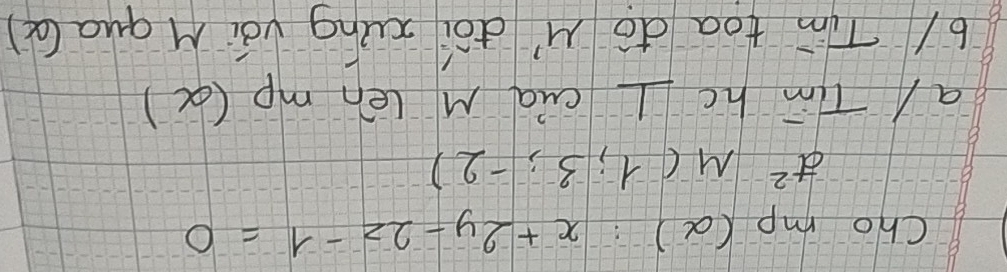 Cho mp (α) : x + 2y - 2z - 1 = 0
đ² M (1; 3; -2)
a/ Tìm hc ⊥ của M lên mp (α)
b/ Tìm tọa độ M' đối xứng với M qua (α)